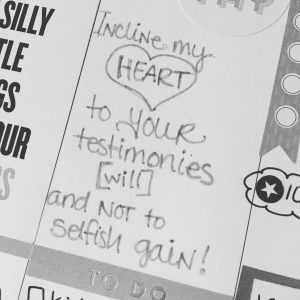 SILLY
TLE
GS
OUR
Incline my
HEART
to YOUR
testimonies
[will]
and NOT to
selfish gain!
TO DO